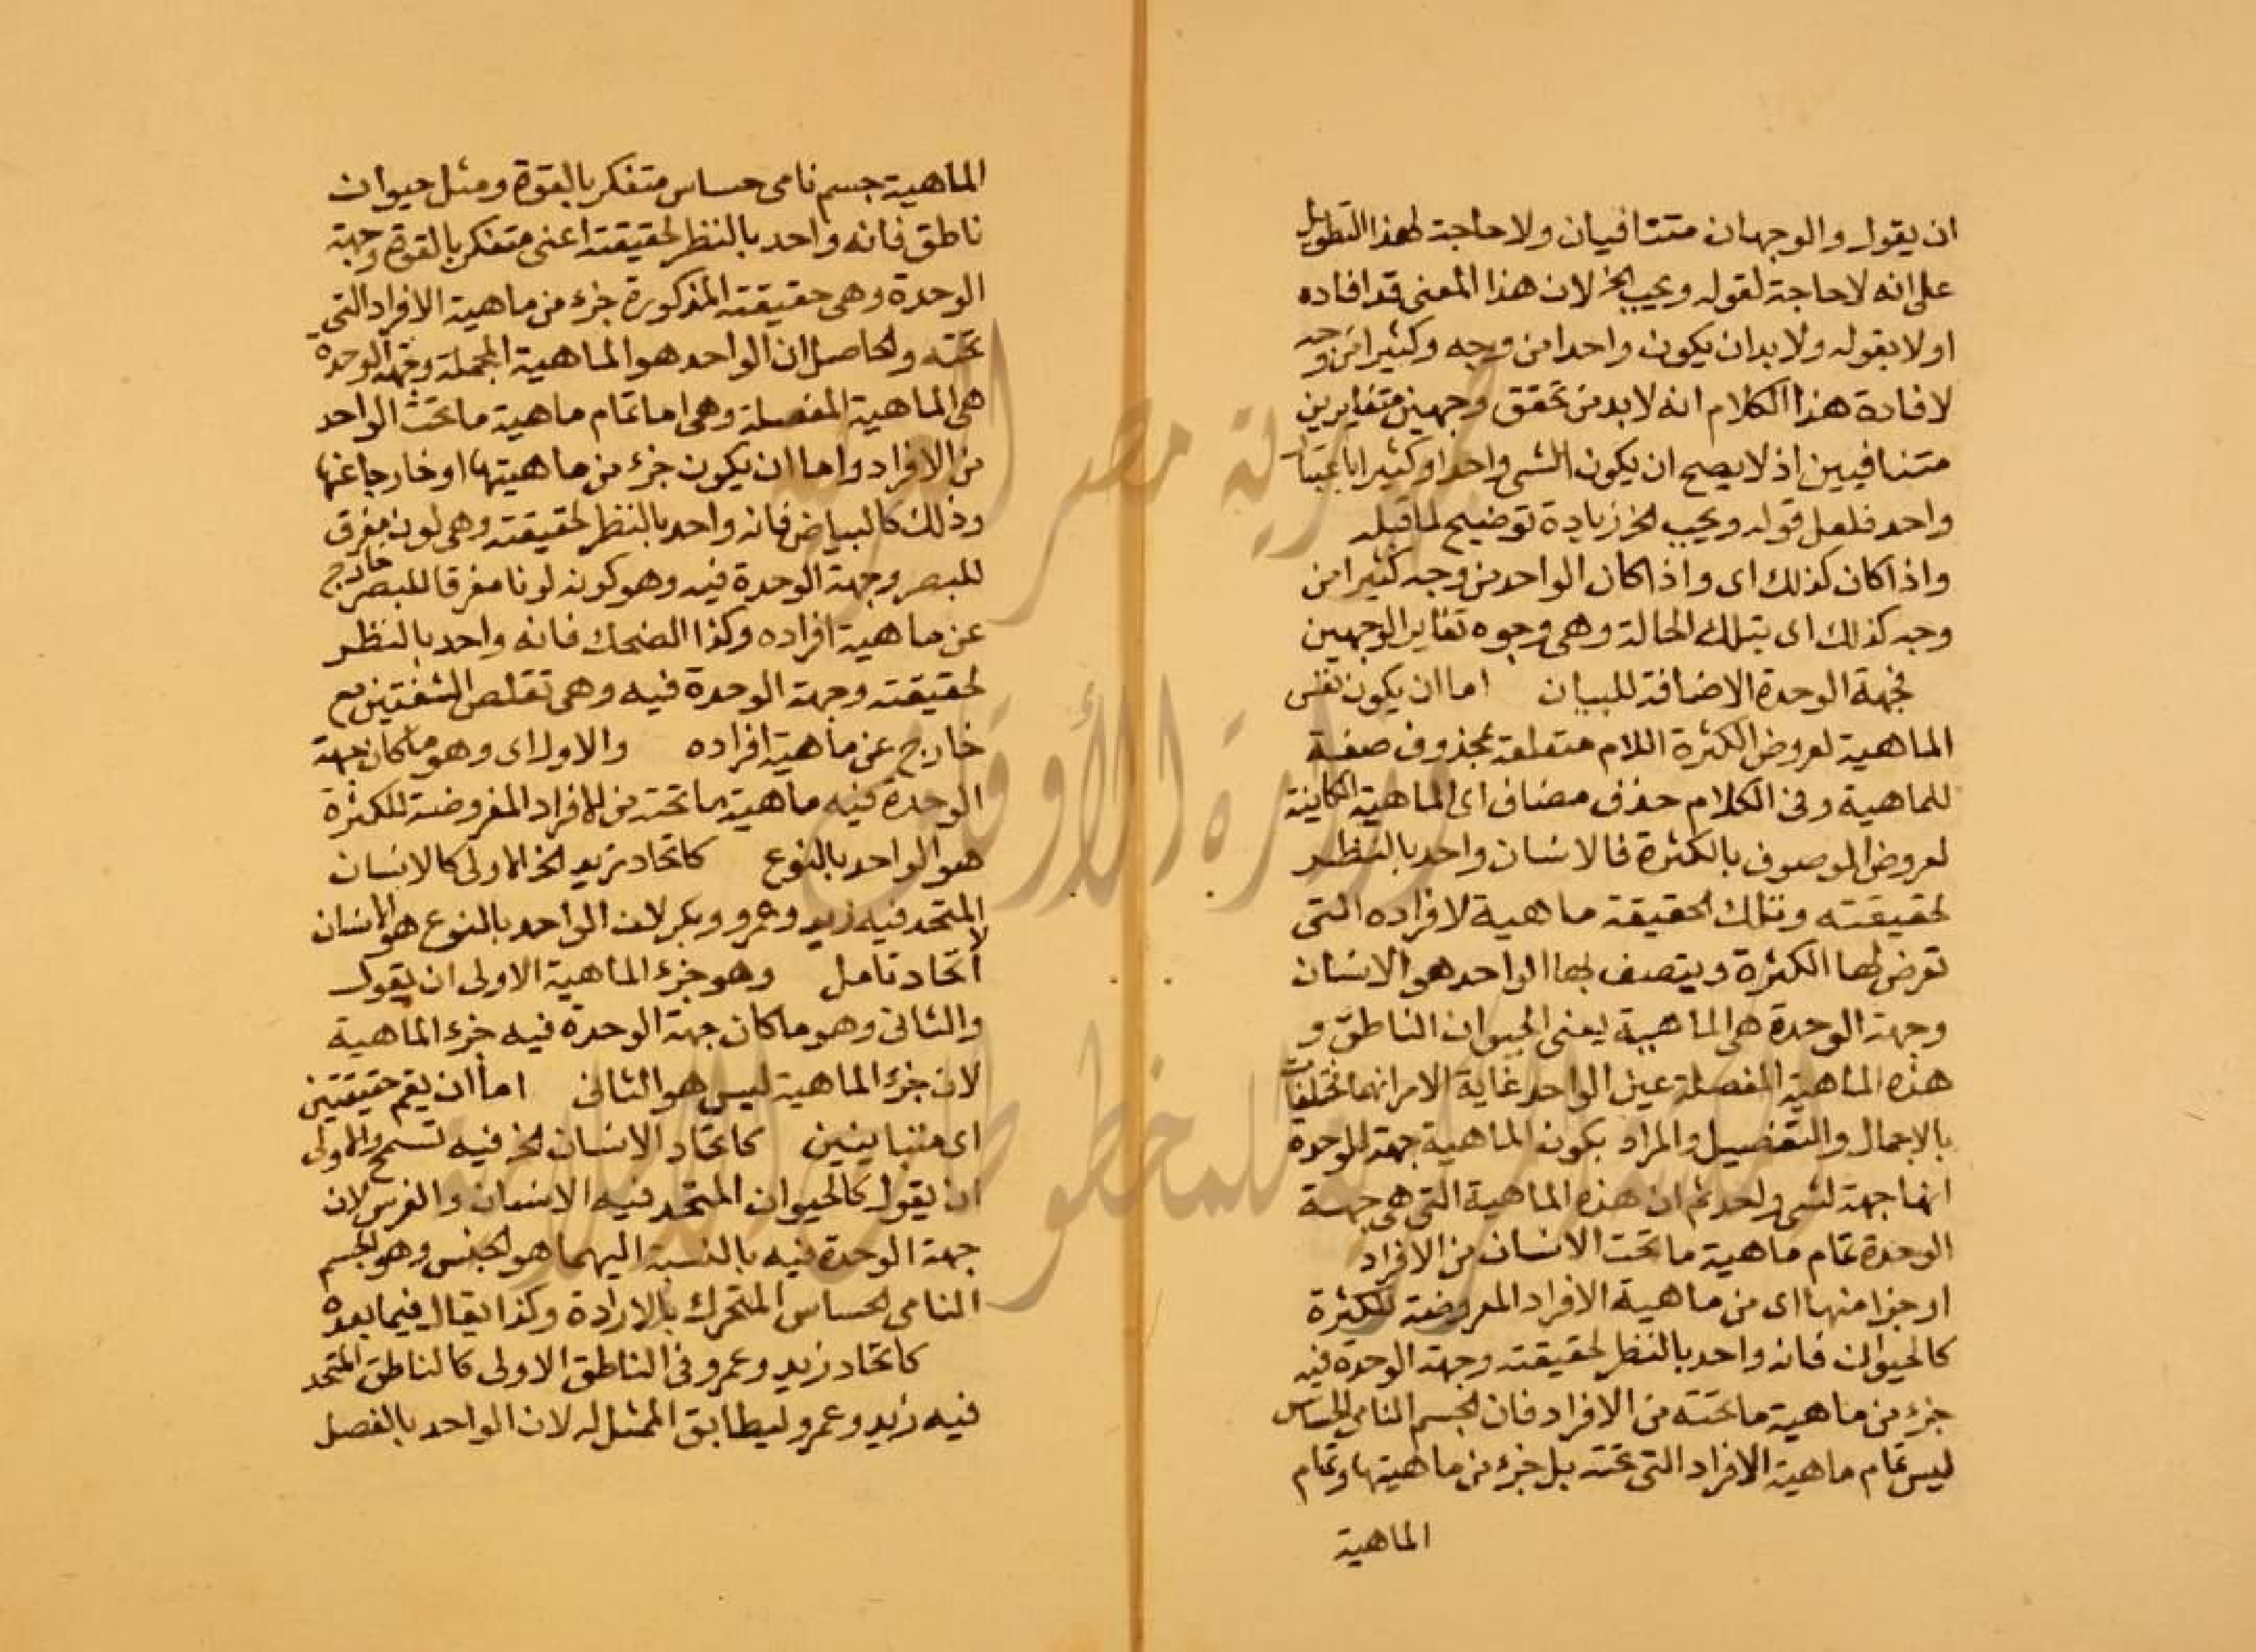 ان يقول والوجهان متنافيان ولا حاجة لهذا التطويل
على انه لا حاجة لقوله ويجب الخ لان هذا المعنى قد افاده
اولا بقوله ولا بد ان يكون واحدا من وجه وكثيرا من وجه
لافادة هذا الكلام انه لا بد من تحقق وجهين متغايرين
متنافيين اذ لا يصح ان يكون الشى واحدا وكثيرا باعتبار
واحد فلعل قوله ويجب الخ زيادة توضيح لما قبله
واذا كان كذلك اى واذا كان الواحد من وجه كثيرا من
وجه كذلك اى بتلك الحالة وهى وجوه تغاير الوجهين
فجهة الوحدة الاضافة للبيان اما ان يكون نفس
الماهية لعروض الكثرة اللام متعلقة بمحذوف صفة
للماهية وفى الكلام حذف مضاف اى الماهية الكاينة
لعروض الموصوف بالكثرة فالانسان واحد بالنظر
لحقيقته وتلك الحقيقة ماهية لافراده التى
تعرض لها الكثرة ويتصف بها الواحد هو الانسان
وجهة الوحدة هى الماهية يعنى الحيوان الناطق و
هذه الماهية المفصلة عين الواحد غاية الامر انهما مختلفان
بالاجمال والتفصيل والمراد بكون الماهية جهة للوحدة
انها جهة لشى واحد ثم ان هذه الماهية التى هى جهة
الوحدة تمام ماهية ما تحت الانسان من الافراد
او جزا منها اى من ماهية الافراد المعروضة للكثرة
كالحيوان فانه واحد بالنظر لحقيقته وجهة الوحدة فيه
جزء من ماهية ما تحته من الافراد فان الجسم النامى الحساس
ليس تمام ماهية الافراد التى تحته بل جزء من ماهيتها وتمام
الماهية
الماهية جسم نامى حساس متفكر بالقوة ومثل حيوان
ناطق فانه واحد بالنظر لحقيقته اعنى متفكر بالقوة وجهة
الوحدة وهى حقيقته المذكورة جزء من ماهية الافراد التى
تحته والحاصل ان الواحد هو الماهية المجملة وجهة الوحدة
هى الماهية المفصلة وهى اما تمام ماهية ما تحت الواحد
من الافراد واما ان يكون جزء من ماهيتها او خارجا عنها
وذلك كالبياض فانه واحد بالنظر لحقيقته وهى لون مفرق
للبصر وجهة الوحدة فيه وهو كونه لونا مفرقا للبصر خارج
عن ماهية افراده وكذا الضحك فانه واحد بالنظر
لحقيقته وجهة الوحدة فيه وهى تقلص الشفتين مع
خارج عن ماهية افراده والاول اى وهو ما كان جهة
الوحدة فيه ماهية ما تحته من الافراد المعروضة للكثرة
هو الواحد بالنوع كاتحاد زيد الخ الاولى كالانسان
المتحد فيه زيد وعمرو وبكر لان الواحد بالنوع هو الانسان
لا اتحاد تامل وهو جزء الماهية الاولى ان يقول
والثانى وهو ما كان جهة الوحدة فيه جزء الماهية
لان جزء الماهية ليس هو الثانى اما ان يعم حقيقتين
اى متباينين كاتحاد الانسان الخ فيه تسمح والاولى
ان يقول كالحيوان المتحد فيه الانسان والفرس لان
جهة الوحدة فيه بالنسبة اليهما هو الجنس وهو الجسم
النامى الحساس المتحرك بالارادة وكذا يقال فيما بعده
كاتحاد زيد وعمرو فى الناطق الاولى كالناطق المتحد
فيه زيد وعمرو ليطابق الممثل له لان الواحد بالفصل